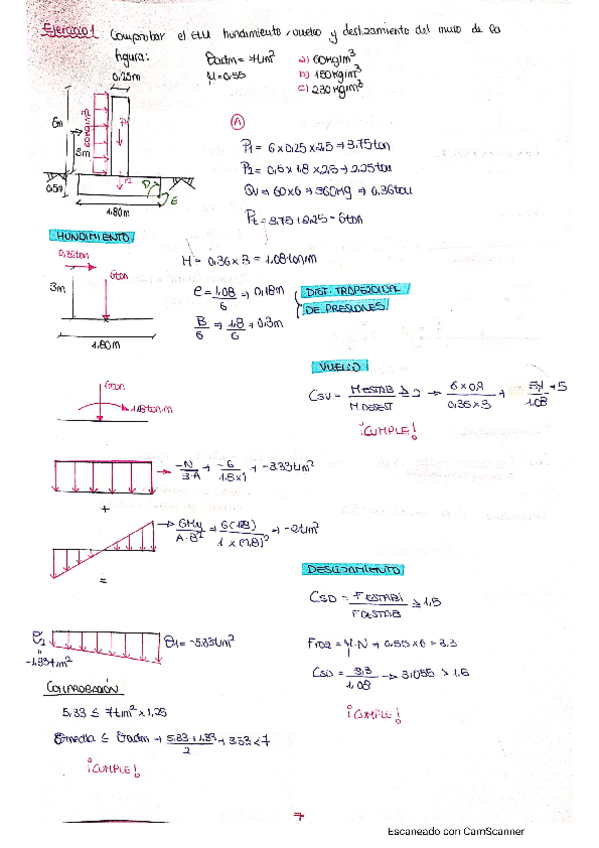 Ejercicio 1 Comprobar el ELU hundimiento, vuelco y deslizamiento del muro de la
figura: σadm = 7t/m² a) 60kg/m³
μ=0.55 b) 150kg/m³
c) 230kg/m³
0.25m
6m
3m
60kg/m³
P1
P2
0.5m
D
E
1.80m
A
P1 = 6 x 0.25 x 2.5 → 3.75ton
P2 = 0.5 x 1.8 x 2.5 → 2.25ton
Qv → 60x6 → 360kg → 0.36ton
Pt = 3.75+2.25 = 6ton
HUNDIMIENTO
0.36ton
6ton
3m
1.80m
M = 0.36 x 3 = 1.08ton·m
e = 1.08/6 → 0.18m
B/6 → 1.8/6 → 0.3m
DIST. TRAPEZOIDAL
DE PRESIONES
VUELCO
CSV = M ESTAB/M DESEST ≥ 2 → 6x0.9/0.36x3 → 5.4/1.08 → 5
¡CUMPLE!
6ton
1.08 ton.m
-N/B·A → -6/1.8x1 → -3.33t/m²
+
6My/A·B² → 6(1.08)/1x(1.8)² → -2t/m²
=
σ2 = -1.334t/m²
σ1 = -5.33t/m²
DESLIZAMIENTO
CSD = F ESTABI/F DESTAB ≥ 1.5
Froz = μ·N → 0.55x6 = 3.3
CSD = 3.3/1.08 → 3.055 > 1.5
¡CUMPLE!
COMPROBACIÓN
5.33 ≤ 7t/m² x 1.25
σmedia ≤ σadm → 5.33+1.33/2 → 3.33<7
¡CUMPLE!
7
Escaneado con CamScanner